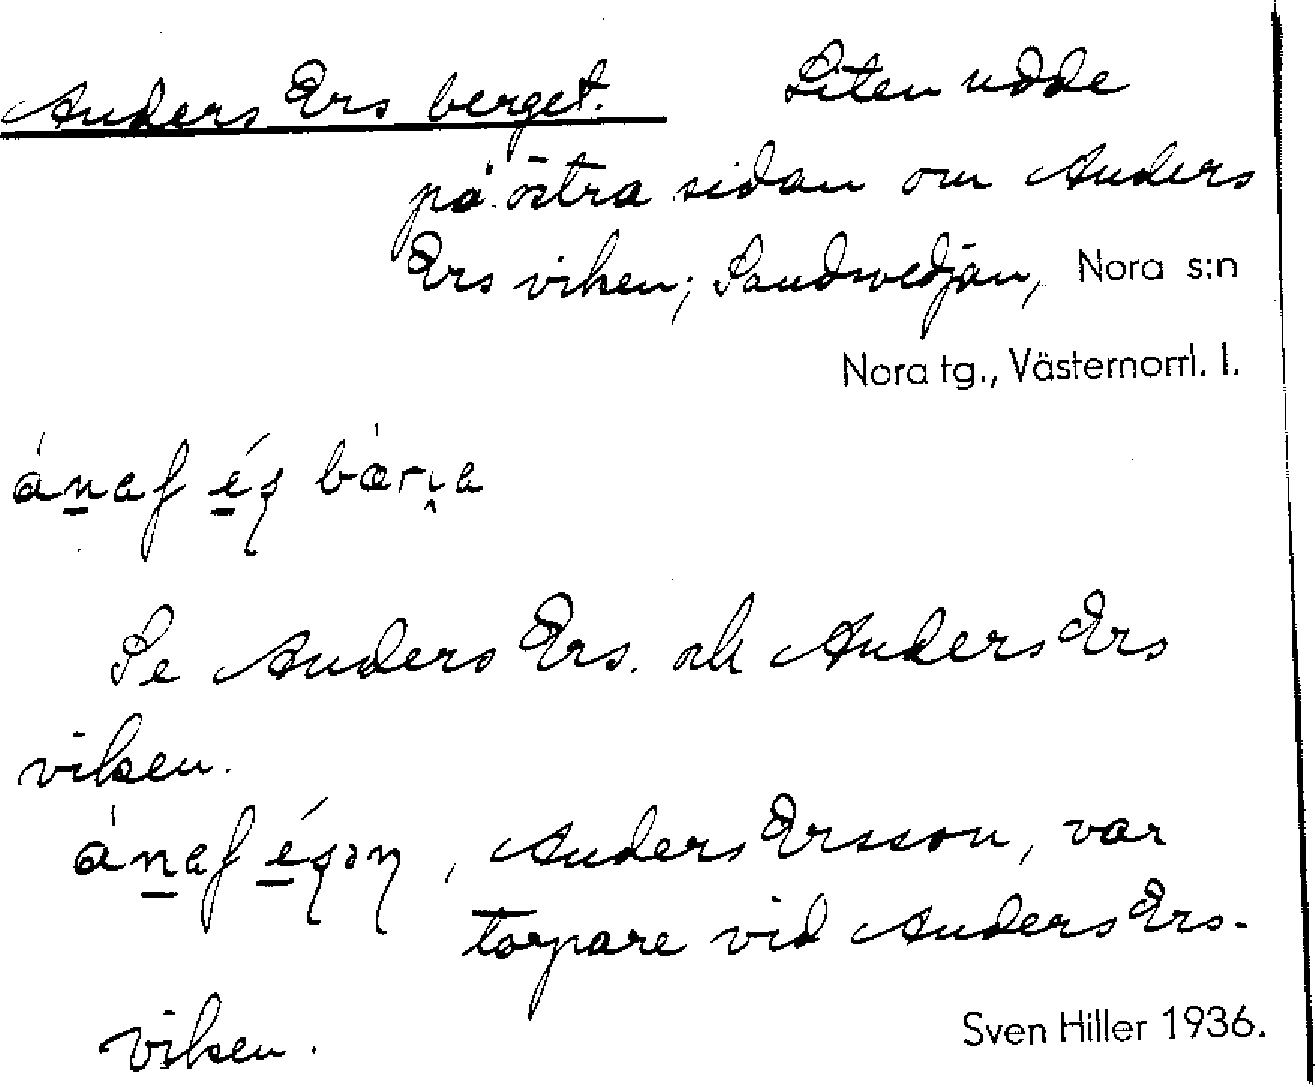 Anders Ers berget. Liten udde
på östra sidan om Anders
Ers viken; Sandsvedjan, Nora s:n
Nora tg., Västernorrl. l.
Se Anders Ers. ok Anders Ers
viken.
, Anders Ersson, var
torpare vid Anders Ers-
viken.
Sven Hiller 1936.